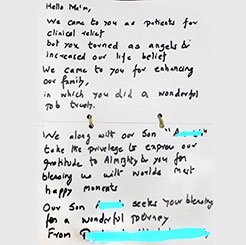 Hello Ma'm,
We came to you as patients for
clinical relief
but you turned as angels &
increased our life belief
We came to you for enhancing
our family,
in which you did a wonderful
job truely.
We along with our Son "A
take the privilege to express our
gratitude to Almighty & you for
blessing us with worlds most
happy moments
Our Son A seeks your blessing
for a wonderful journey
From